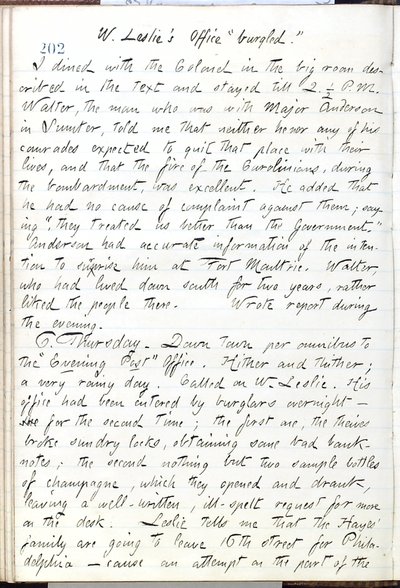 W. Leslie's Office "burgled."
202
I dined with the Colonel in the big room des-
cribed in the text and stayed till 2 1/2 P.M.
Walter, the man who was with Major Anderson
in Sumter, told me that neither he nor any of his
comrades expected to quit that place with their
lives, and that the fire of the Carolinians, during
the bombardment, was excellent. He added that
he had no cause of complaint against them; say-
ing "they treated us better than the Government."
Anderson had accurate information of the inten-
tion to surprise him at Fort Moultrie. Walter
who had lived down south for two years, rather
liked the people there. Wrote report during
the evening.
6. Thursday. Down town per omnibus to
the "Evening Post" Office. Hither and thither;
a very rainy day. Called on W. Leslie. His
office had been entered by burglars overnight —
for the second time; the first one, the thieves
broke sundry locks, obtaining some bad bank-
notes; the second nothing but two sample bottles
of champagne, which they opened and drank,
leaving a well-written, ill-spelt request for more
on the desk. Leslie tells me that the Hayes'
family are going to leave 16th street for Phila-
delphia — cause an attempt on the part of the